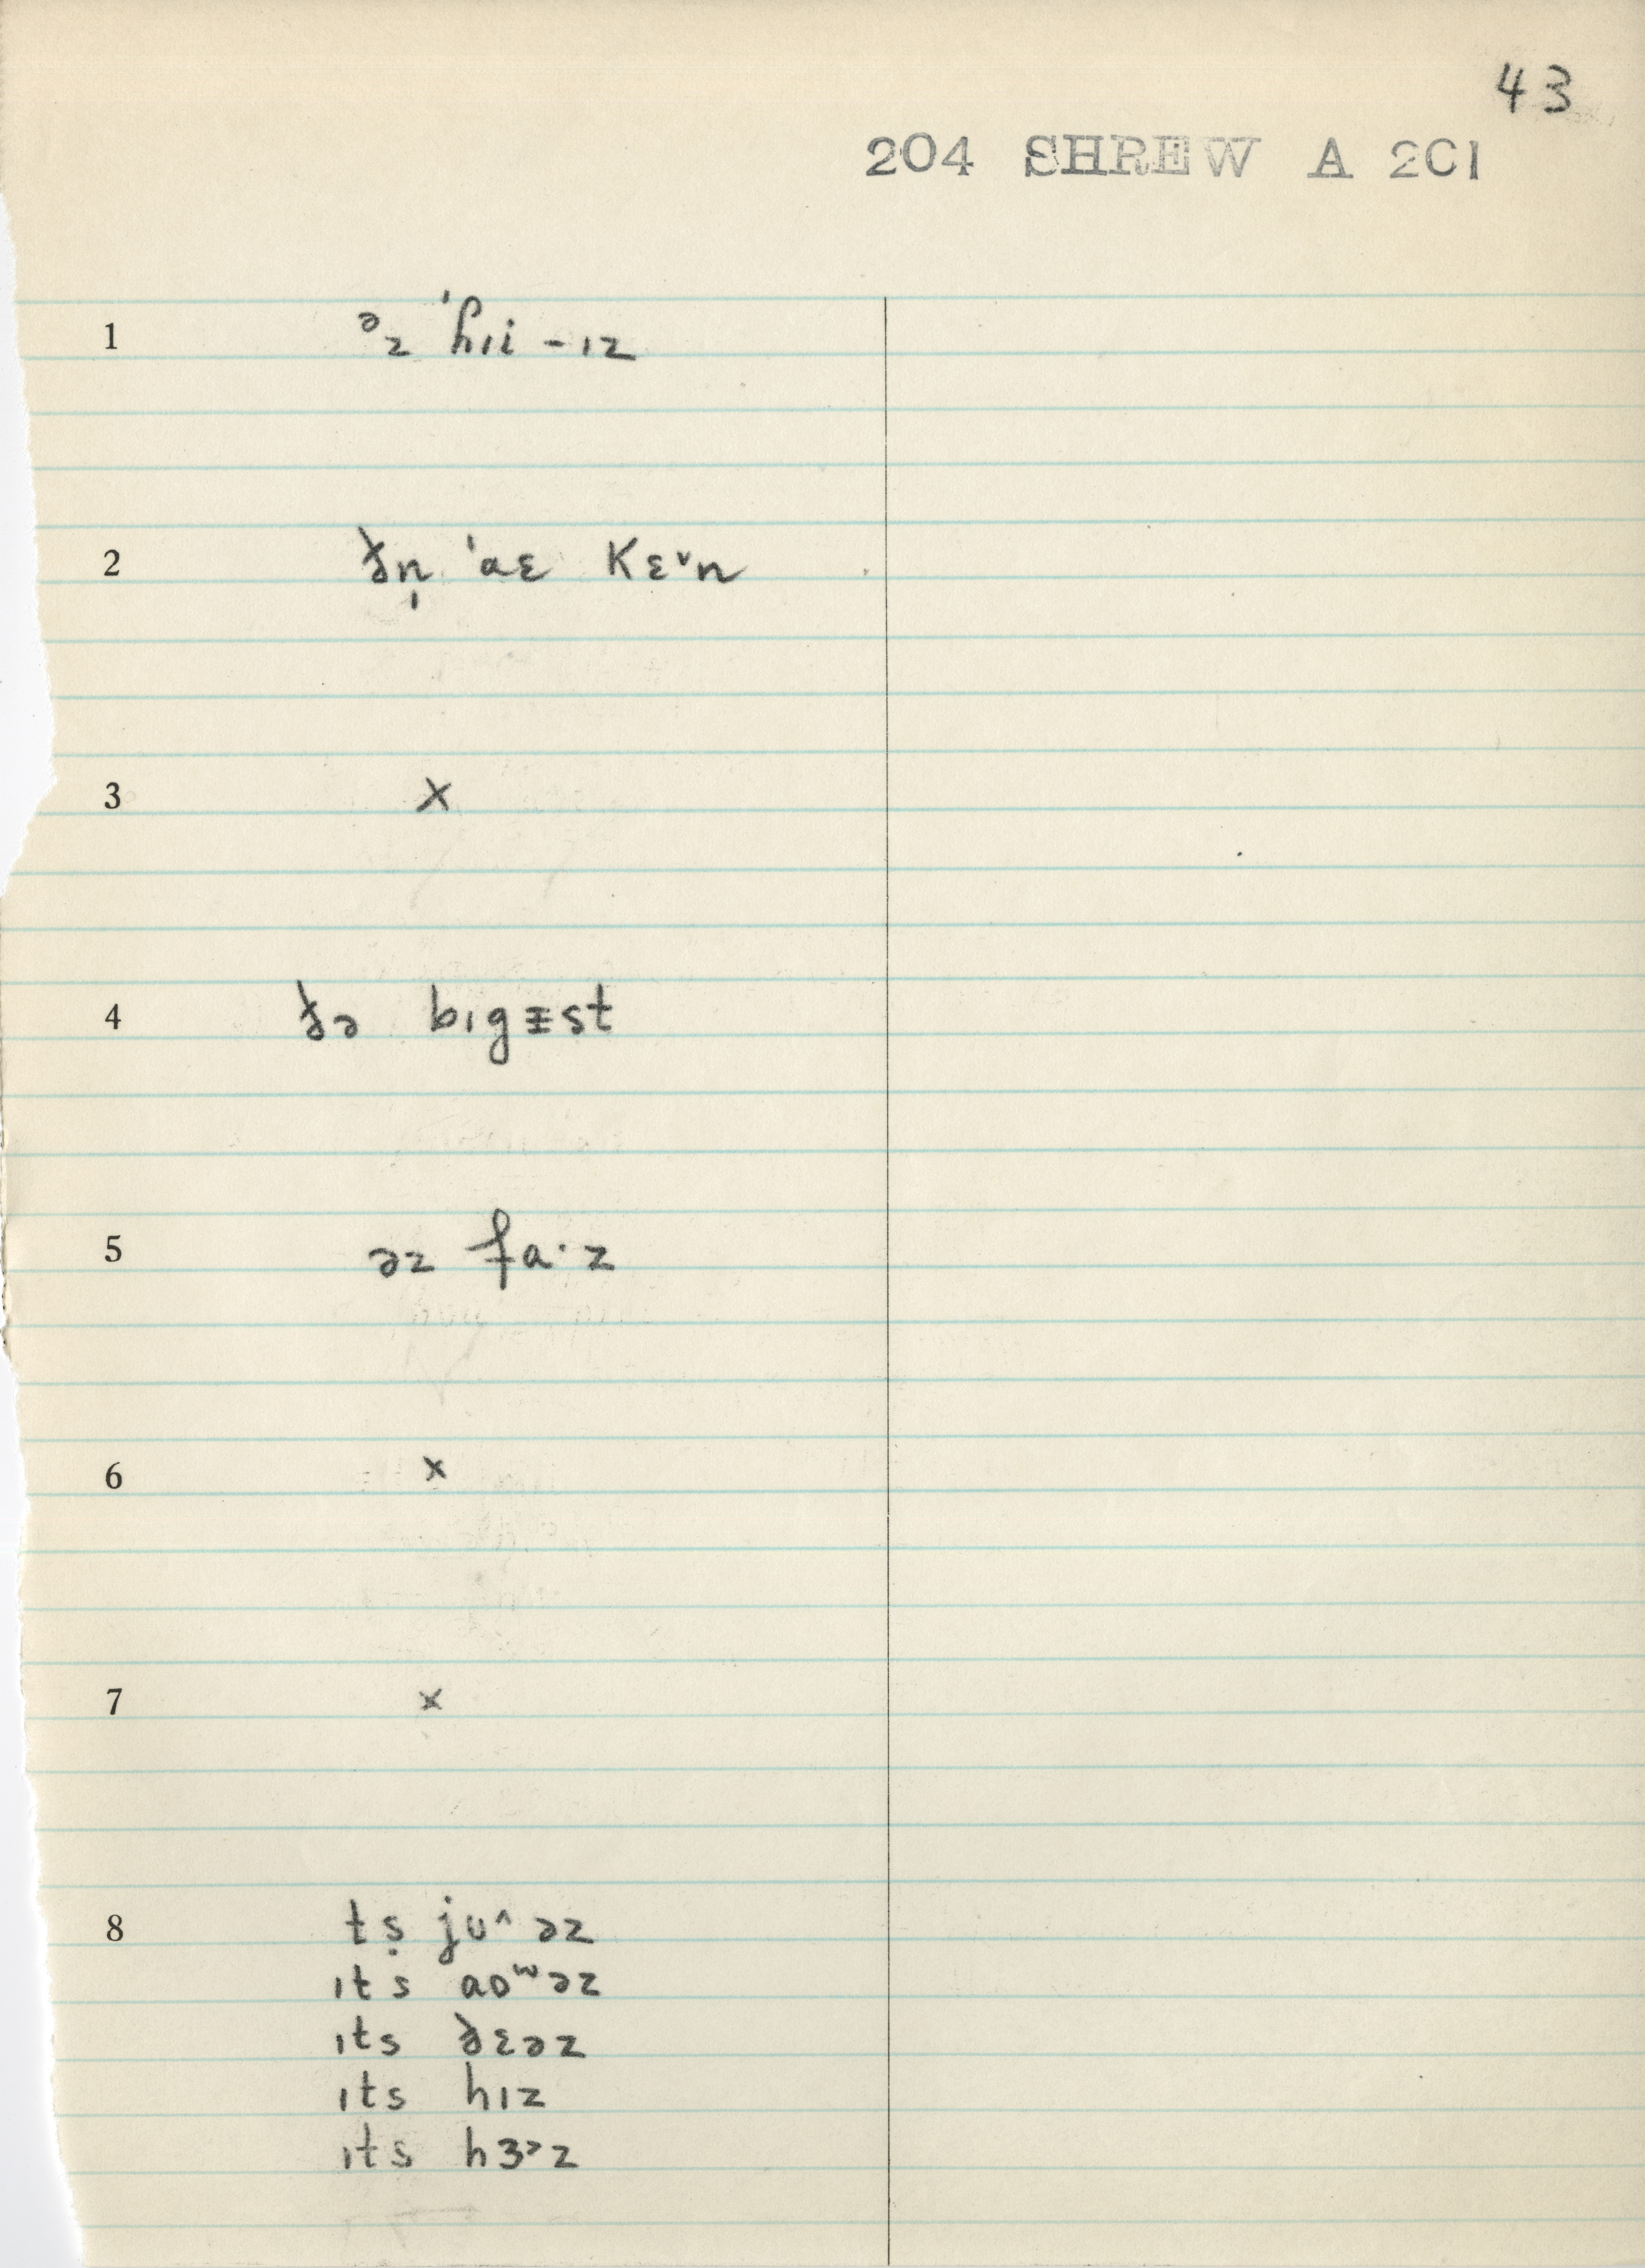 43
204 SHREW A 2C1
1 ᵊz ˈhɪi - ɪz
2 ðn̩ ˈaɛ kɛ˅n
3 x
4 ðə bɪgᵻst
5 əz fa·z
6 x
7 x
8 tṣ jʊ^əz
ɪts aʊʷəz
ɪts ðɛəz
ɪts hɪz
ɪts hɜ˃z